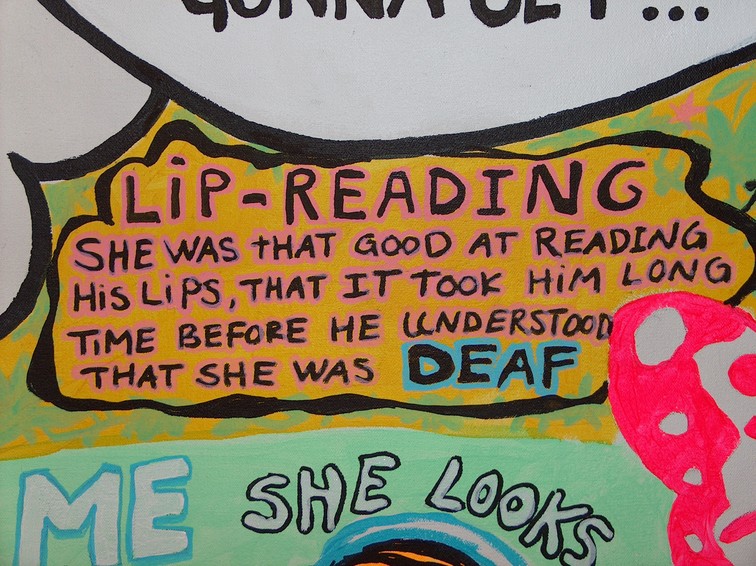 GONNA GET...
LiP-READING
SHE WAS tHAT GOOD AT READING
HiS LiPS, THAT IT TOOK HiM LONG
TiME BEFORE HE UNDERSTOOD
THAT SHE WAS DEAF
ME SHE LOOKS